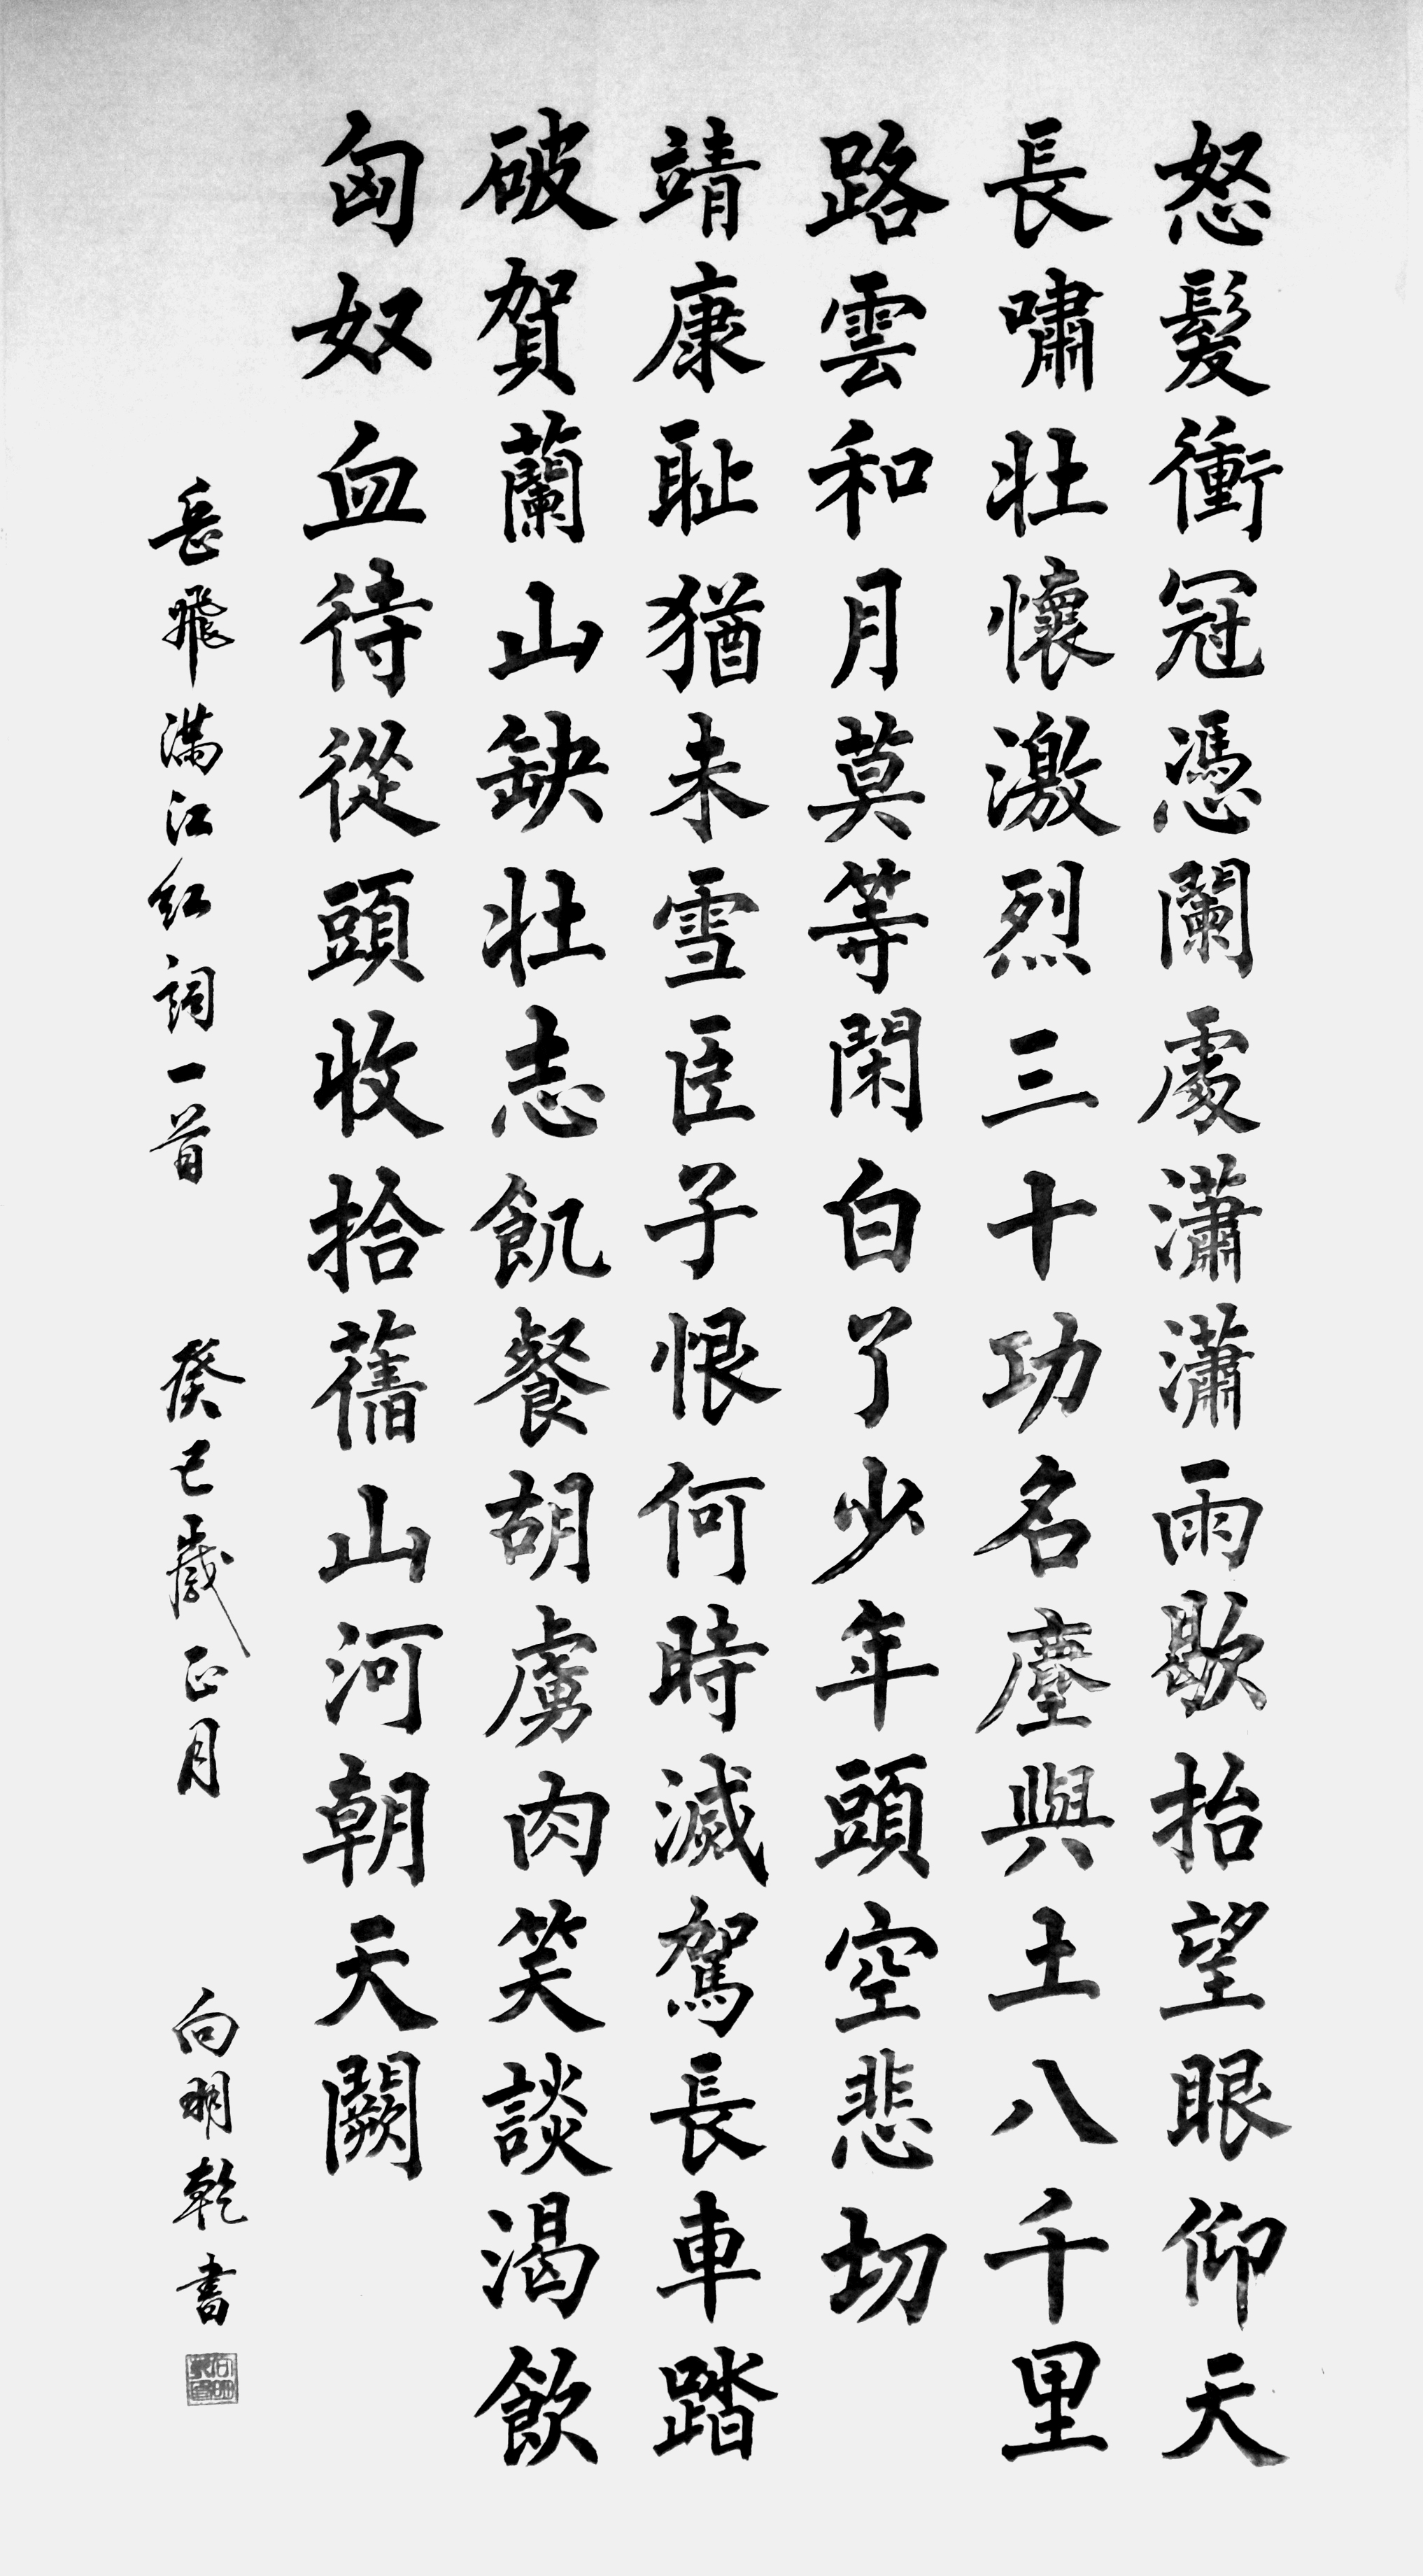 怒髮衝冠憑闌處瀟瀟雨歇抬望眼仰天
長嘯壯懷激烈三十功名塵與土八千里
路雲和月莫等閑白了少年頭空悲切
靖康耻猶未雪臣子恨何時滅駕長車踏
破賀蘭山缺壯志飢餐胡虜肉笑談渴飲
匈奴血待從頭收拾舊山河朝天闕
岳飛滿江紅詞一首 癸巳歲正月 向明乾書